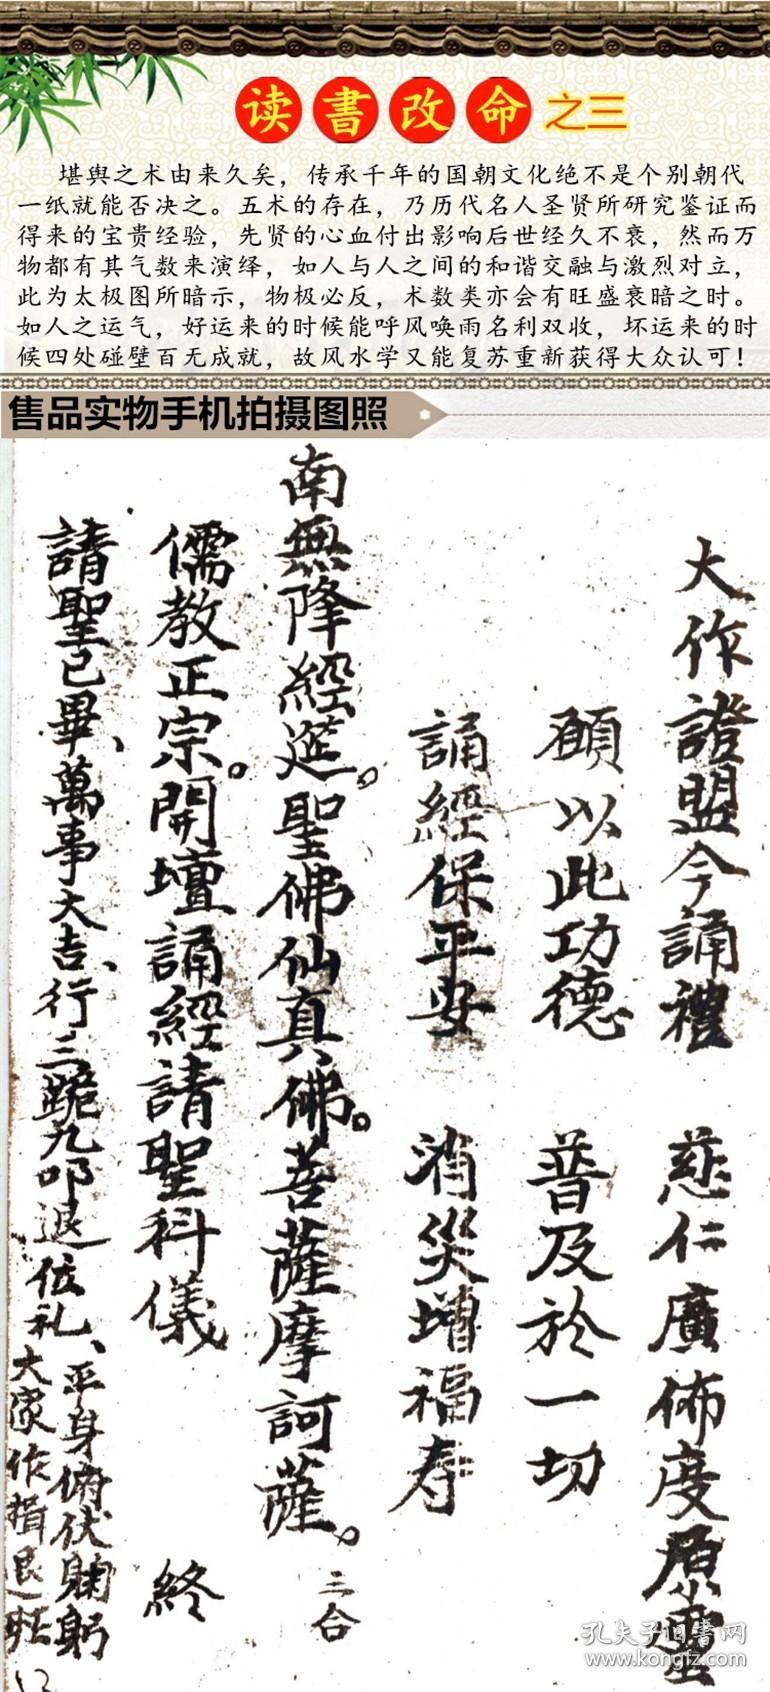 读書改命之三
堪舆之术由来久矣，传承千年的国朝文化绝不是个别朝代
一纸就能否决之。五术的存在，乃历代名人圣贤所研究鉴证而
得来的宝贵经验，先贤的心血付出影响后世经久不衰，然而万
物都有其气数来演绎，如人与人之间的和谐交融与激烈对立，
此为太极图所暗示，物极必反，术数类亦会有旺盛衰暗之时。
如人之运气，好运来的时候能呼风唤雨名利双收，坏运来的时
候四处碰壁百无成就，故风水学又能复苏重新获得大众认可！
售品实物手机拍摄图照
大作證盟今誦禮 慈仁廣佈度原靈
願以此功德 普及於一切
誦經保平安 消災增福寿
南無降經筵。聖佛仙真佛。菩薩摩訶薩。三合
儒教正宗。開壇誦經請聖科儀 終
請聖已畢、萬事大吉、行三跪九叩退位礼、平身俯伏鞠躬
大家作揖退班
孔夫子旧書网
www.kongfz.com